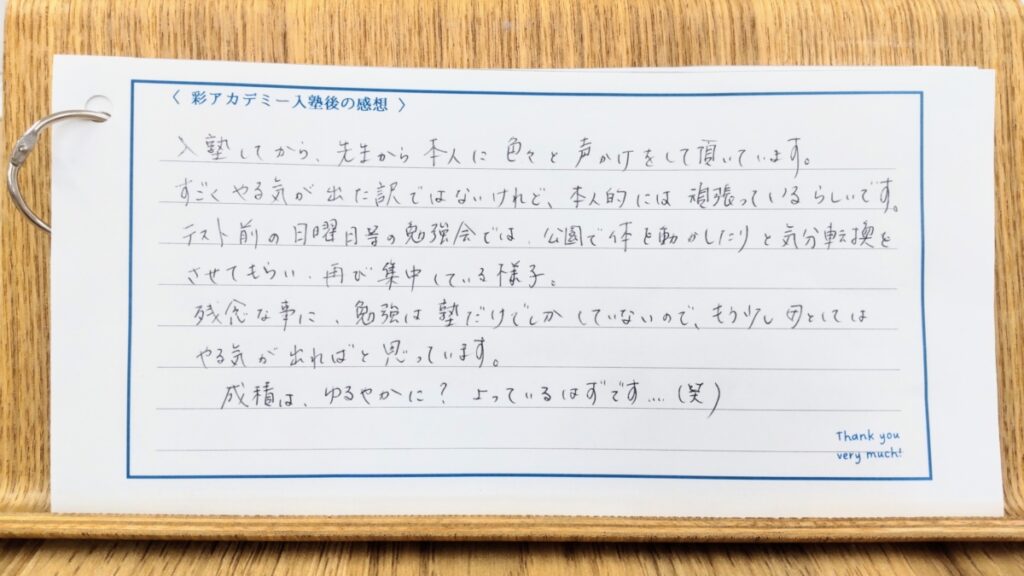 〈 彩アカデミー入塾後の感想 〉
入塾してから、先生から本人に色々と声かけをして頂いています。
すごくやる気が出た訳ではないけれど、本人的には頑張っているらしいです。
テスト前の日曜日等の勉強会では、公園で体を動かしたりと気分転換を
させてもらい、再び集中している様子。
残念な事に、勉強は塾だけでしかしていないので、もう少し母としては
やる気が出ればと思っています。
成積は、ゆるやかに? よっているはずです…(笑)
Thank you
very much!